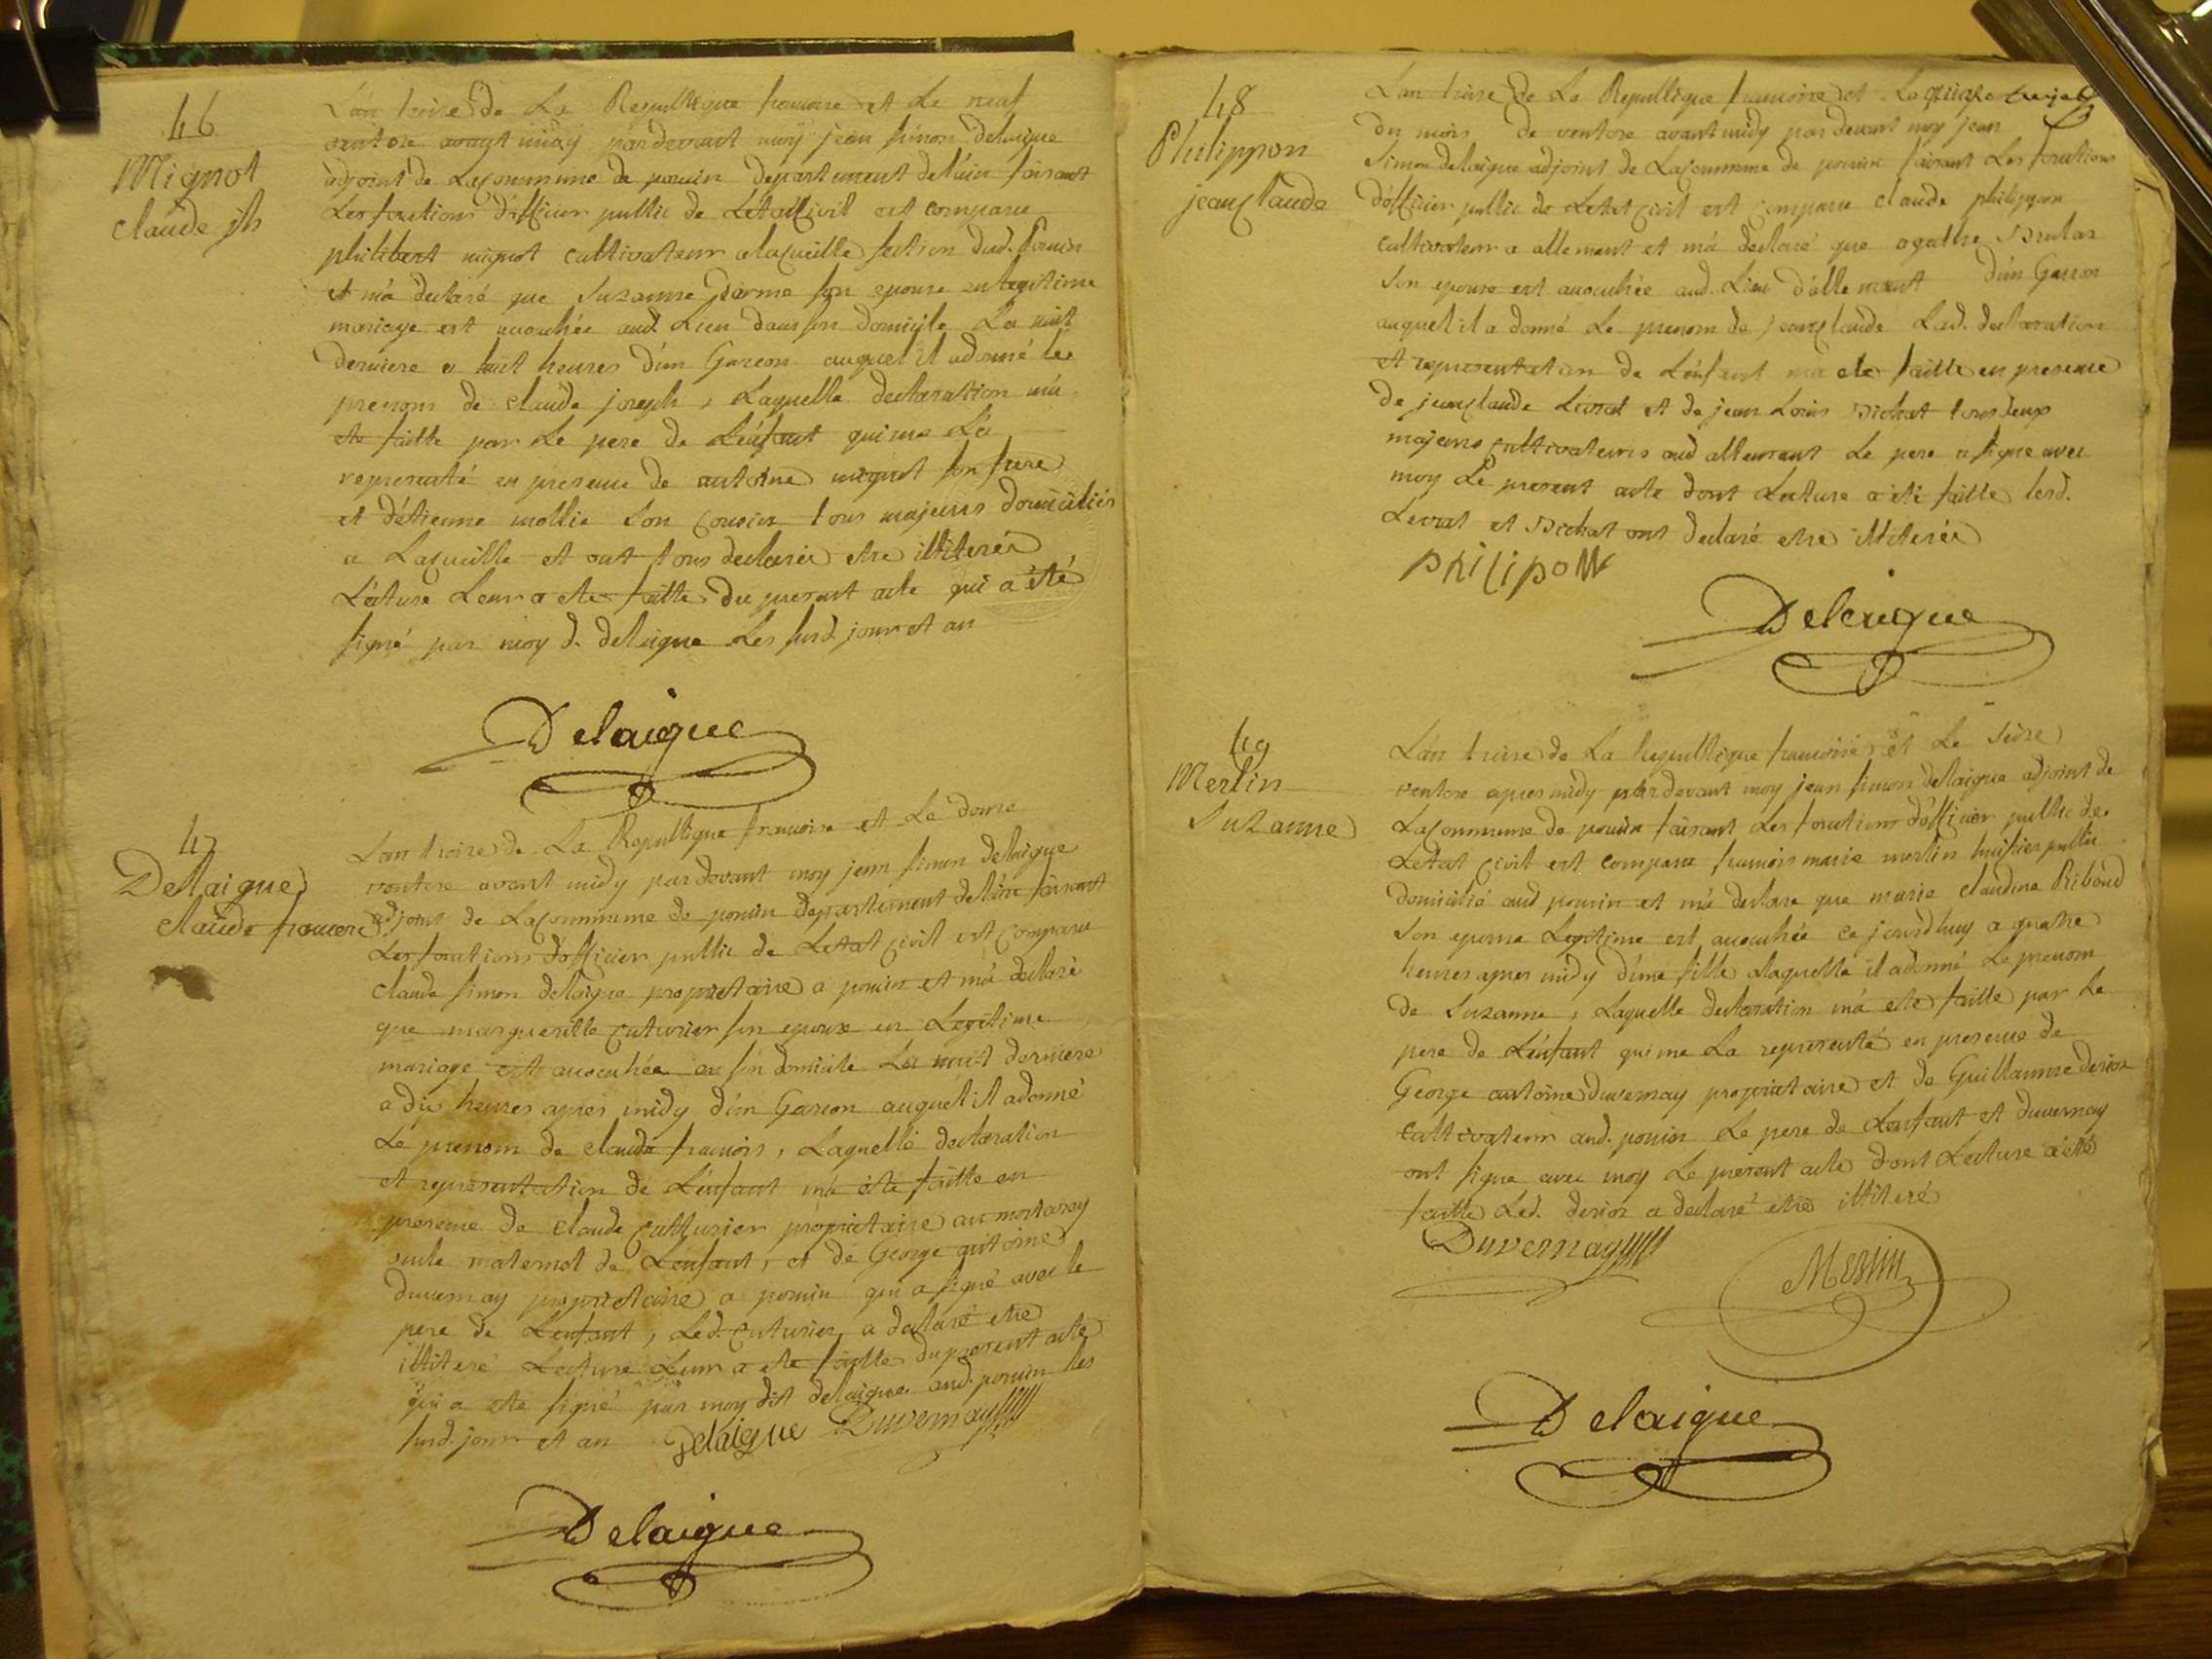 46
Mignot
claude jh
L'an treize de La Republique francoise et Le neuf
ventose avant midy pardevant moy jean simon delaigue
adjoint de Lacommune de poncin departement delain faisant
Les fonctions d'officier public de Letat Civil est comparu
philibert mignot cultivateur alacueille section dud. Poncin
et m'a declaré que Suzanne darme son epouse en legitime
mariage est accouchée aud. Lieu dans son domicile La nuit
derniere a huit heures d'un Garcon auquel il adonné les
prenoms de claude joseph, Laquelle declaration m'a
ete faitte par Le pere de L'enfant qui me La
representé en presence de antoine mignot son frere
et d'étienne mollie Son Cousin tous majeurs domiciliés
a Lacueille et ont tous declarés etre illiterés
Lecture Leur a ete faitte du present acte qui a été
signé par moy d. delaigue Les susd. jour et an
Delaigue
47
Dellaigue
claude francois
L'an treize de La Republique francoise et Le douze
ventose avant midy pardevant moy jean simon delaigue
adjoint de Lacommune de poncin departement delain faisant
Les fonctions d'officier public de Letat civil est Comparu
claude simon delaigue proprietaire a poncin et m'a declaré
que margueritte Cuturier son epouse en Legitime
mariage est accouchée en son domicile La nuit derniere
a dix heures apres midy d'un Garcon auquel il adonné
Le prenom de claude francois, Laquelle declaration
et representation de L'enfant m'a ete faitte en
presence de claude Cutturier proprietaire au mortarey
oncle maternel de L'enfant, et de George antoine
duvernay proprietaire a poncin qui a signé avec le
pere de L'enfant, Led. Cuturier a declaré etre
illiteré Lecture Leur a ete faitte du present acte
qui a ete signé par moy dit delaigue aud. poncin les
susd. jour et an Delaigue Duvernay
Delaigue
48
Philippon
jean Claude
L'an treize de La Republique francoise et Le quinze
du mois de ventose avant midy pardevant moy jean
Simon delaigue adjoint de Lacommune de poncin faisant Les fonctions
d'officier public de Letat Civil est Comparu claude philippon
cultivateur a allement et m'a declaré que agathe
Son epouse est accouchée aud. Lieu d'allement d'un Garcon
auquel il a donné Le prenom de jean Claude Lad. declaration
et representation de L'enfant m'a ete faitte en presence
de jean Claude Levrat et de jean Louis Bichat tous deux
majeurs Cultivateurs aud allement Le pere a signe avec
moy Le present acte dont Lecture a été faitte lesd.
Levrat et Bichat ont declaré etre illiterés
philipon
Delaigue
49
Merlin
Suzanne
L'an treize de La Republique francoise et Le seize
ventose apres midy pardevant moy jean simon dellaigue adjoint de
Lacommune de poncin faisant Les fonctions d'officier public de
Letat Civil est comparu francois marie merlin huissier public
domicilié aud poncin et m'a declare que marie claudine Riboud
Son epouse Legitime est accouchée ce jourdhuy a quatre
heures apres midy d'une fille alaquelle il adonné Le prenom
de Suzanne, Laquelle declaration m'a ete faitte par Le
pere de L'enfant qui me La representé en presence de
George antoine duvernay proprietaire et de Guillaume
cultivateur aud. poncin Le pere de Lenfant et duvernay
ont signe avec moy Le present acte dont Lecture a été
faitte Led. a declaré etre illiteré
Duvernay
Merlin
Delaigue